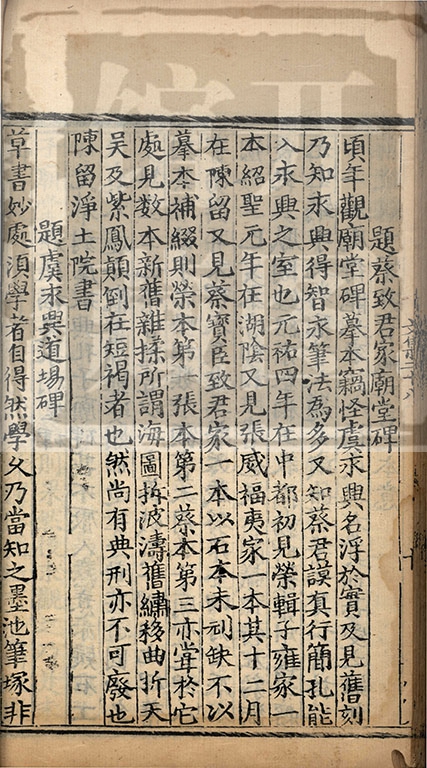 題蔡致君家廟堂碑
頃年觀廟堂碑摹本竊怪虞永興名浮於實及見舊刻
乃知永興得智永筆法為多又知蔡君謨真行簡孔能
入永興之室也元祐四年在中都初見榮輯子雍家一
本紹聖元年在湖陰又見張威福夷家一本其十二月
在陳留又見蔡寶臣致君家一本以石本未刓缺不以
摹本補綴則榮本第一張本第二蔡本第三亦嘗於它
處見數本新舊雜揉所謂海圖拆波濤舊繡移曲折天
吳及紫鳳顛倒在短褐者也然尚有典刑亦不可廢也
陳留淨土院書
題虞永興道場碑
草書妙處須學者自得然學久乃當知之墨池筆塚非